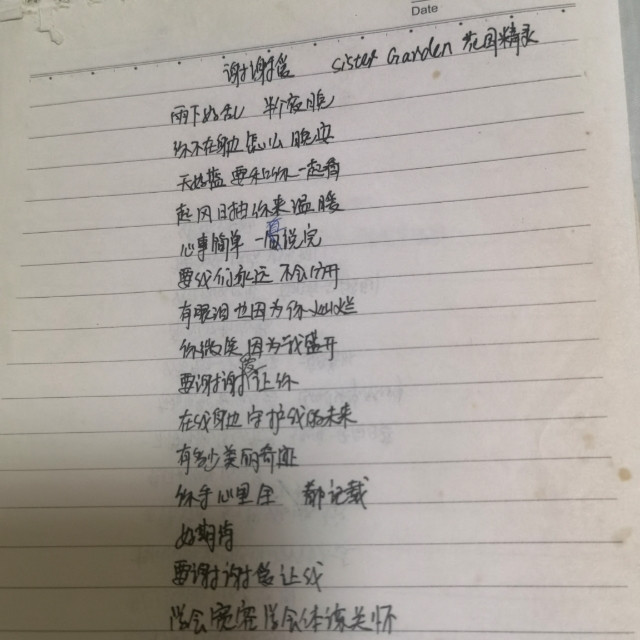 Date
谢谢爱 Sister Garden 花园精灵
雨下好乱 半夜醒
你不在身边怎么晚安
天好蓝 要和你一起看
起风日抽你来温暖
心事简单 一 说完
要我们永远 不会分开
有眼泪也因为你灿烂
你微笑因为我盛开
要谢谢爱让你
在我身边守护我的未来
有多少美丽奇迹
你手心里全 都记载
好期待
要谢谢爱让我
学会宽容学会体谅关怀